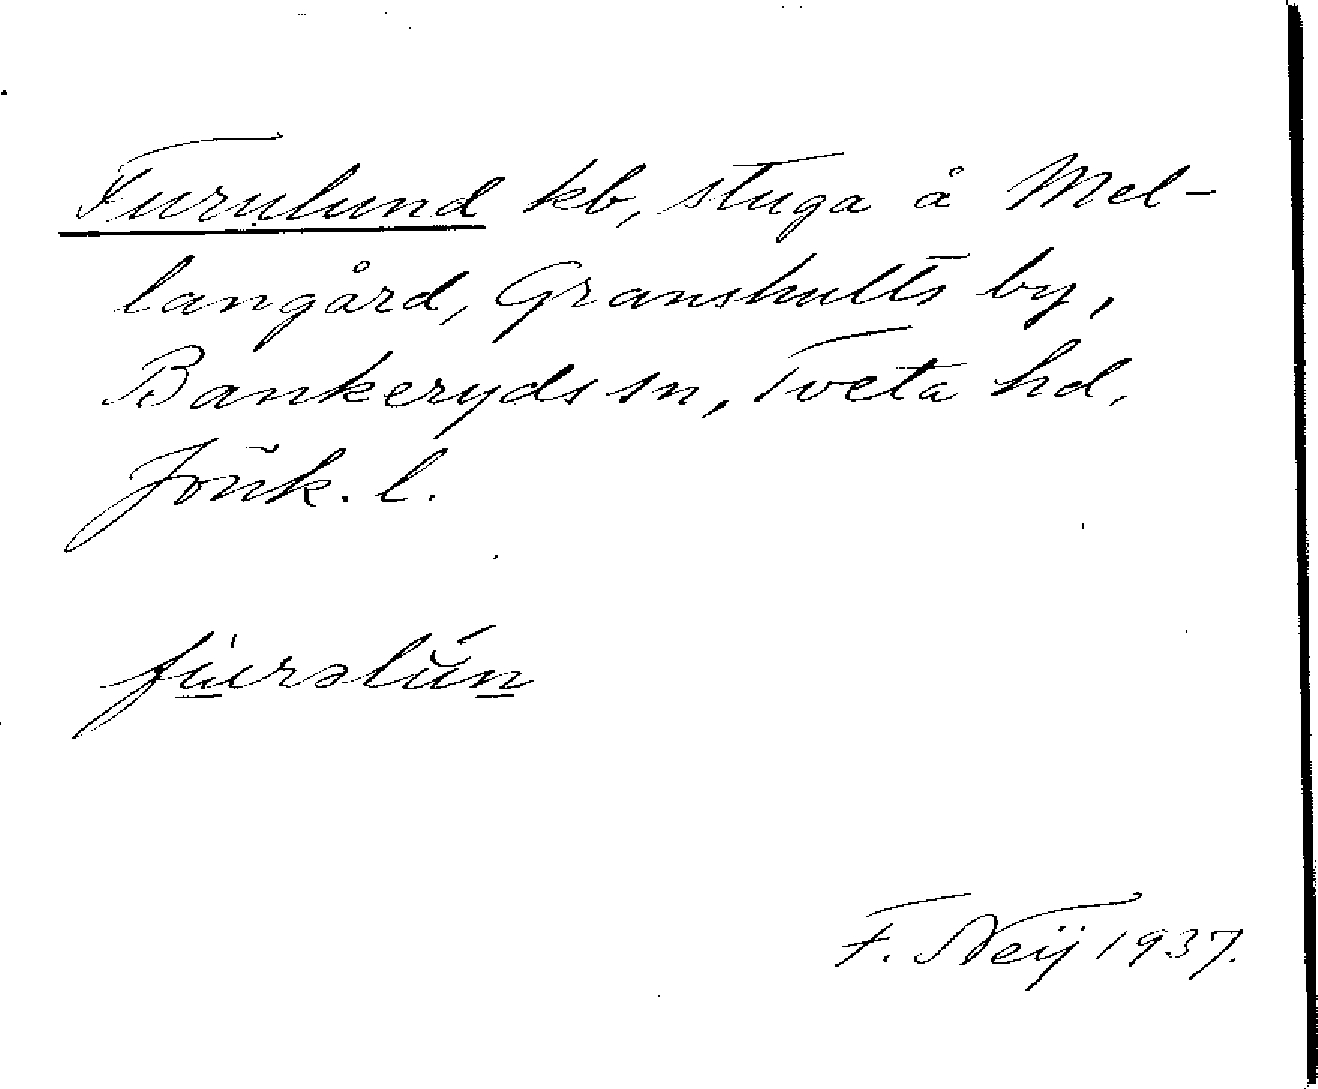 Furulund kb, stuga å Mel-
langård, Granshults by,
Bankeryds sn, Tveta hd,
Jönk. l.
F. Neij 1937.